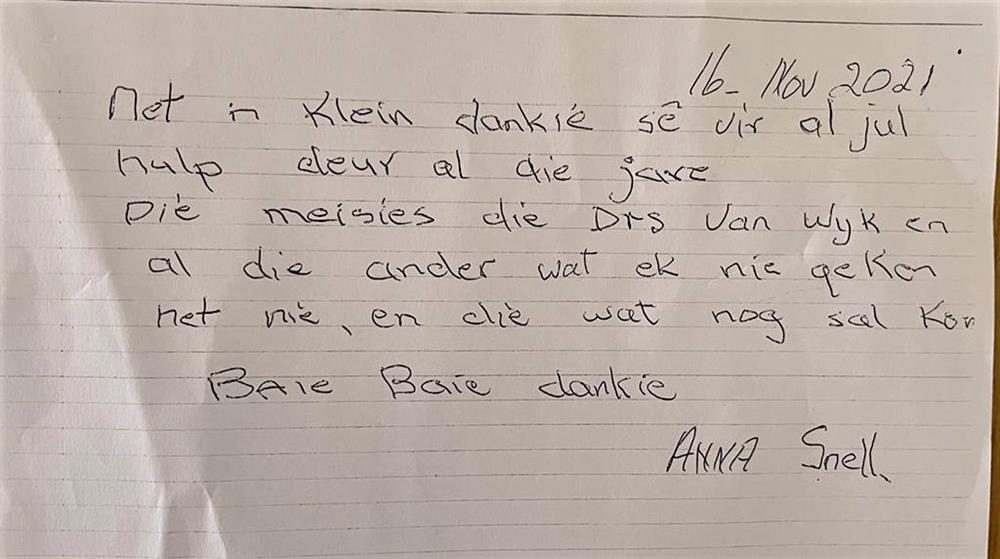 16- Nov 2021
Net 'n Klein dankie sê vir al jul
hulp deur al die jare
Die meisies die Drs Van Wyk en
al die ander wat ek nie geken
het nie, en die wat nog sal Kom
Baie Baie dankie
ANNA Snell.